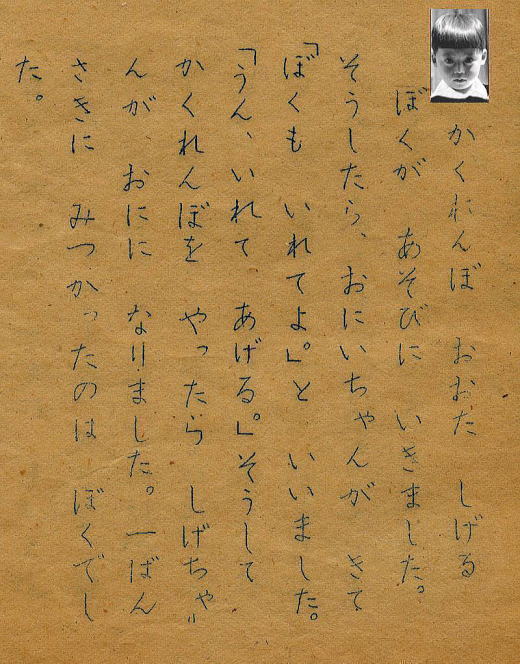 かくれんぼ　おおた　しげる
ぼくが　あそびに　いきました。
そうしたら、おにいちゃんが　きて
「ぼくも　いれてよ。」と　いいました。
「うん、いれて　あげる。」そうして
かくれんぼを　やったら　しげちゃ
んが　おにに　なりました。一ばん
さきに　みつかったのは　ぼくでし
た。